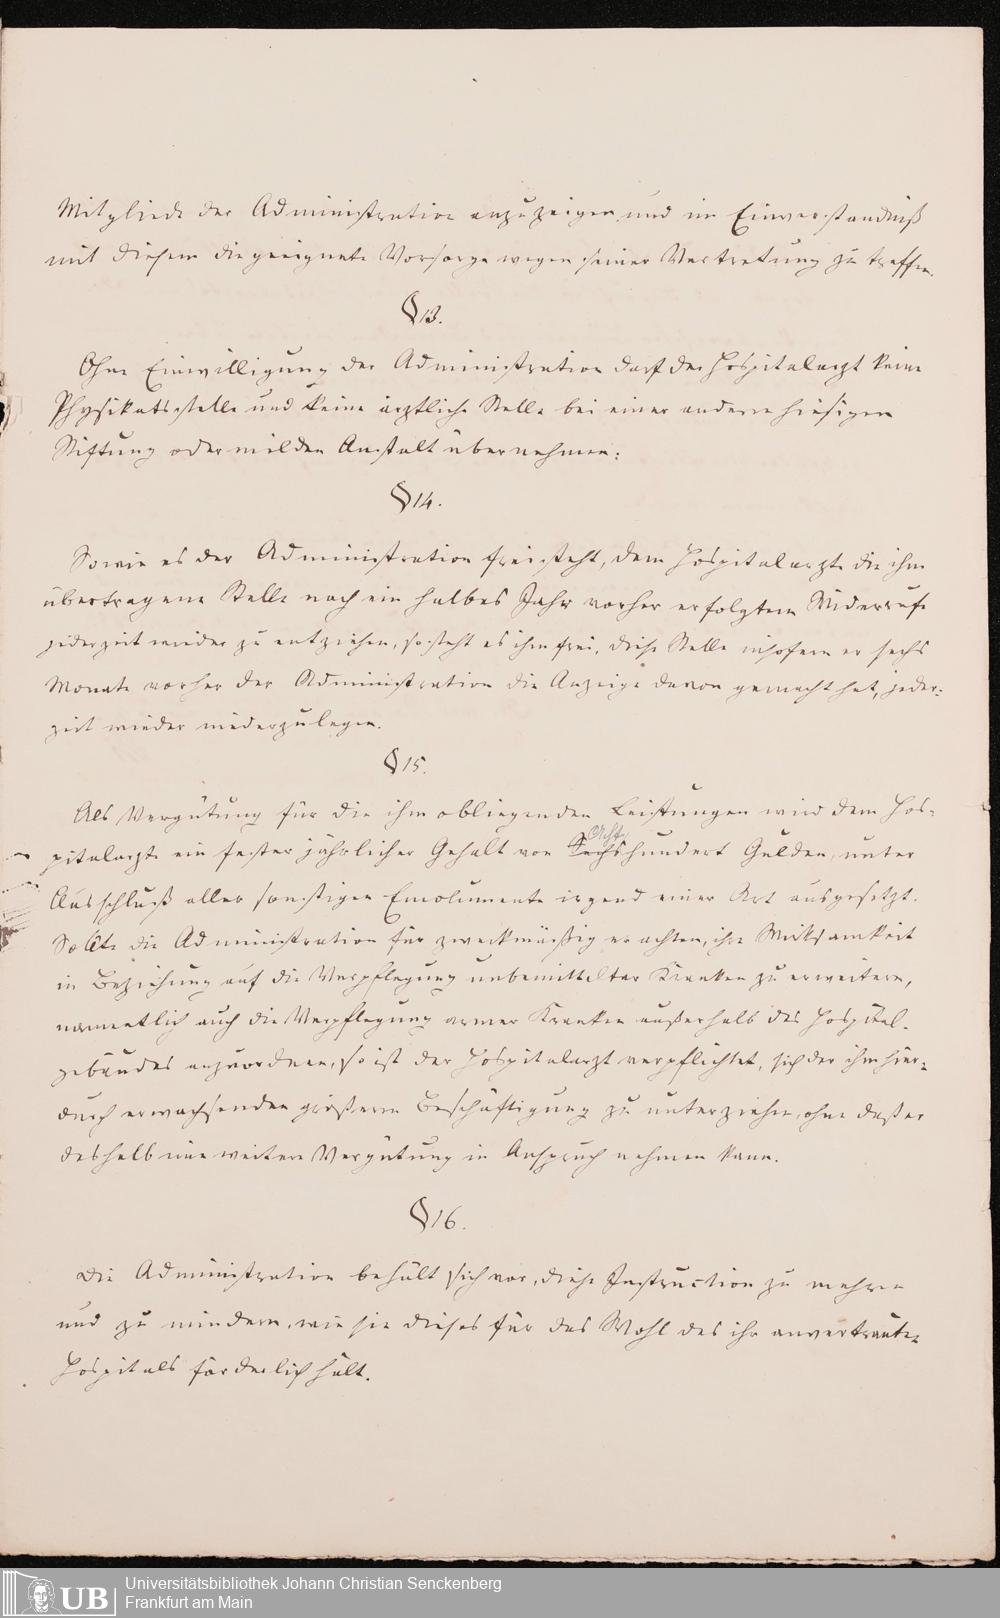 Mitgliede der Administration anzuzeigen und im Einverständniß
mit diesem die geeignete Vorsorge wegen seiner Vertretung zu treffen.
§ 13.
Ohne Einwilligung der Administration darf der Hospitalarzt keine
Physikatsstelle und keine ärztliche Stelle bei einer andern hiesigen
Stiftung oder milden Anstalt übernehmen.
§ 14.
Sowie es der Administration freisteht, dem Hospitalarzte die ihm
übertragene Stelle nach ein halbes Jahr vorher erfolgtem Widerrufe
jederzeit wieder zu entziehen, so steht es ihm frei, diese Stelle insofern er sechs
Monate vorher der Administration die Anzeige davon gemacht hat, jeder-
zeit wieder niederzulegen.
§ 15.
Als Vergütung für die ihm obliegenden Leistungen wird dem Hos-
Acht
pitalarzte ein fester jährlicher Gehalt von Sechshundert Gulden, unter
Ausschluß aller sonstigen Emolumente irgend einer Art ausgesetzt.
Sollte die Administration für zweckmäßig erachten, ihre Wirksamkeit
in Beziehung auf die Verpflegung unbemittelter Kranken zu erweitern,
namentlich auch die Verpflegung armer Kranken außerhalb des Hospital-
gebäudes anzuordnen, so ist der Hospitalarzt verpflichtet, sich der ihm hier-
durch erwachsenden größeren Beschäftigung zu unterziehen, ohne daß er
deshalb eine weitere Vergütung in Anspruch nehmen kann.
§ 16.
Die Administration behält sich vor, diese Instruction zu mehren
und zu mindern, wie sie dieses für das Wohl des ihr anvertrauten
Hospitals förderlich hält.
UB
Universitätsbibliothek Johann Christian Senckenberg
Frankfurt am Main